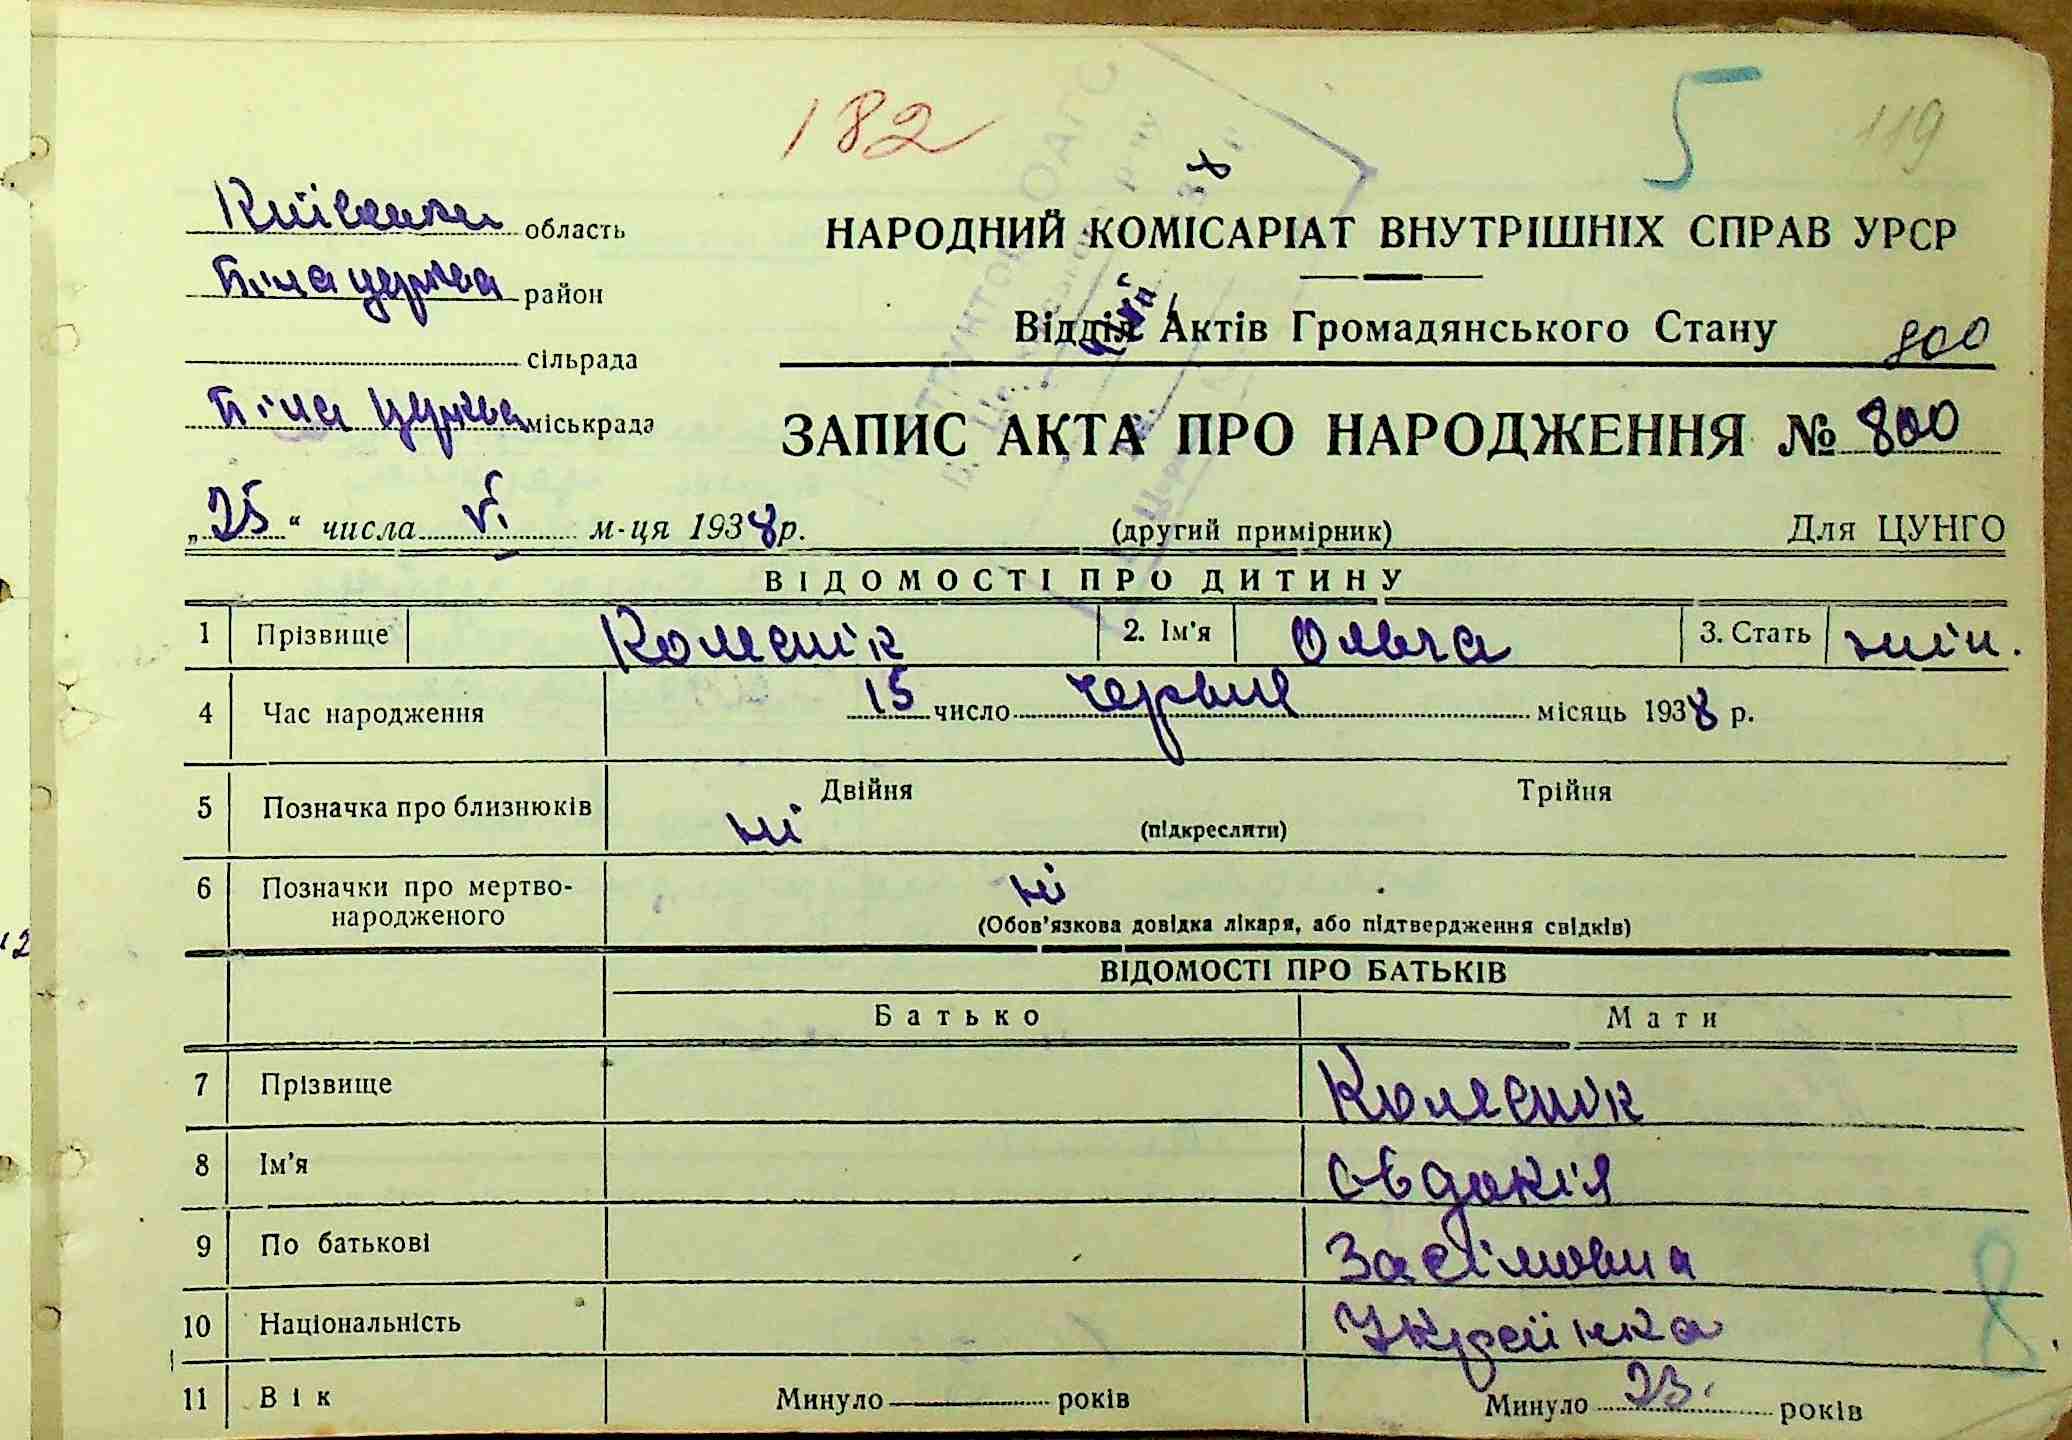 182
5
119
Київська область
Біла церква район
сільрада
Біла церква міськрада
НАРОДНИЙ КОМІСАРІАТ ВНУТРІШНІХ СПРАВ УРСР
Відділ Актів Громадянського Стану
800
ЗАПИС АКТА ПРО НАРОДЖЕННЯ № 800
„25“ числа VI м-ця 1938 р. (другий примірник) Для ЦУНГО
ВІДОМОСТІ ПРО ДИТИНУ
1 Прізвище Колеснік 2. Ім'я Ольга 3. Стать жін.
4 Час народження 15 число червня місяць 1938 р.
5 Позначка про близнюків ні Двійня Трійня
(підкреслити)
6 Позначки про мертво-
народженого ні
(Обов'язкова довідка лікаря, або підтвердження свідків)
ВІДОМОСТІ ПРО БАТЬКІВ
Батько Мати
7 Прізвище Колеснік
8 Ім'я Євдокія
9 По батькові Засімовна
10 Національність Українка
8
11 Вік Минуло років Минуло 23 років